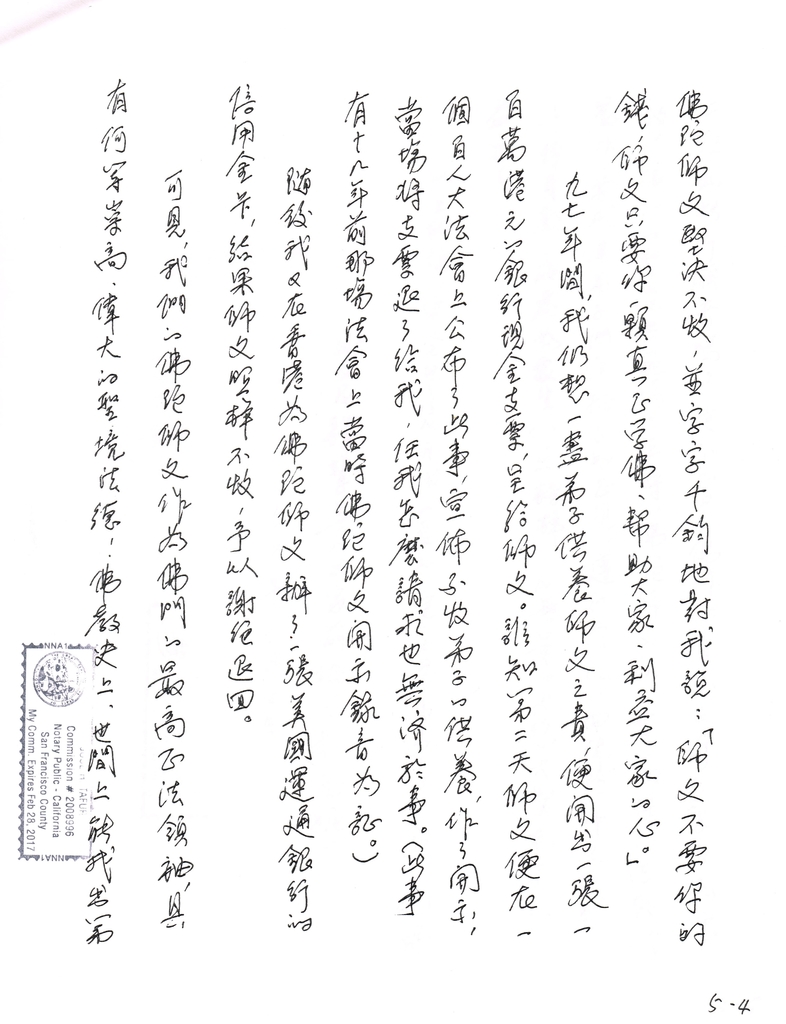 佛陀師父堅決不收，並字字千鈞地對我說：「師父不要你的
錢，師父只要你一顆真正學佛、幫助大家、利益大家的心」。
九七年間，我仍想一盡弟子供養師父之責，便開出一張一
百萬港元的銀行現金支票，呈給師父。誰知第二天師父便在一
個百人大法會上公布了此事，宣佈不收弟子的供養，作了開示，
當場將支票退了給我，任我怎麼請求也無济於事。（此事
有十九年前那場法會上當時佛陀師父開示錄音為証。）
隨後我又在香港為佛陀師父辦了一張美國運通銀行的
信用金卡，結果師父照樣不收，予以謝絕退回。
可見，我們的佛陀師父作為佛門的最高正法領袖，具
有何等崇高、偉大的聖境法德！佛教史上、世間上能找出第
NNA1
Commission # 2008996
Notary Public - California
San Francisco County
My Comm. Expires Feb 28, 2017
NNA1
5-4